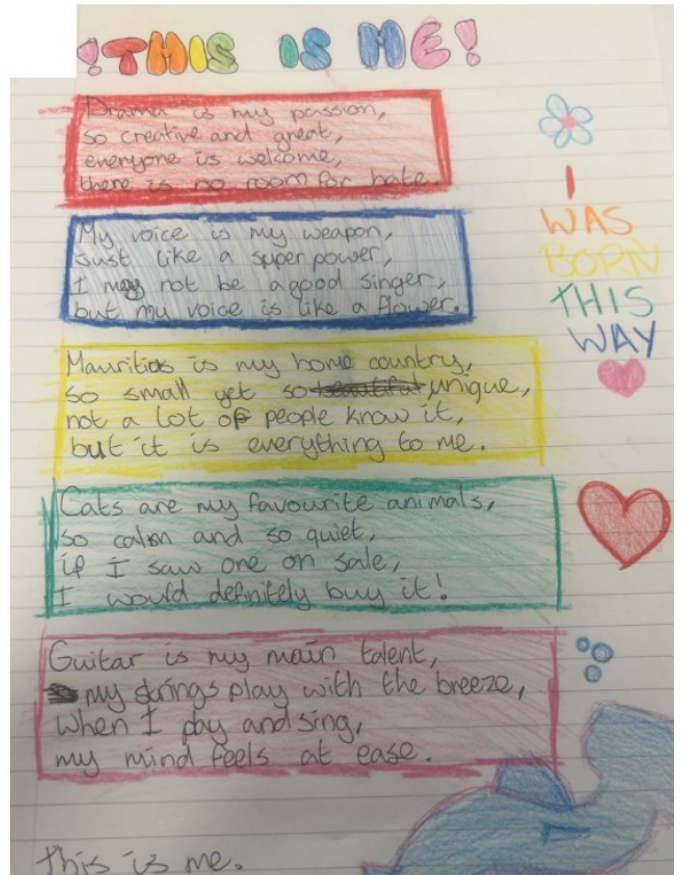 !THIS IS ME!
Drama is my passion,
so creative and great,
everyone is welcome,
there is no room for hate.
My voice is my weapon,
Just like a super power,
I may not be a good singer,
but my voice is like a flower.
Mauritius is my home country,
so small yet so unique,
not a lot of people know it,
but it is everything to me.
Cats are my favourite animals,
so calm and so quiet,
if I saw one on sale,
I would definitely buy it!
Guitar is my main talent,
my strings play with the breeze,
when I play and sing,
my mind feels at ease.
this is me.
I
WAS
BORN
THIS
WAY